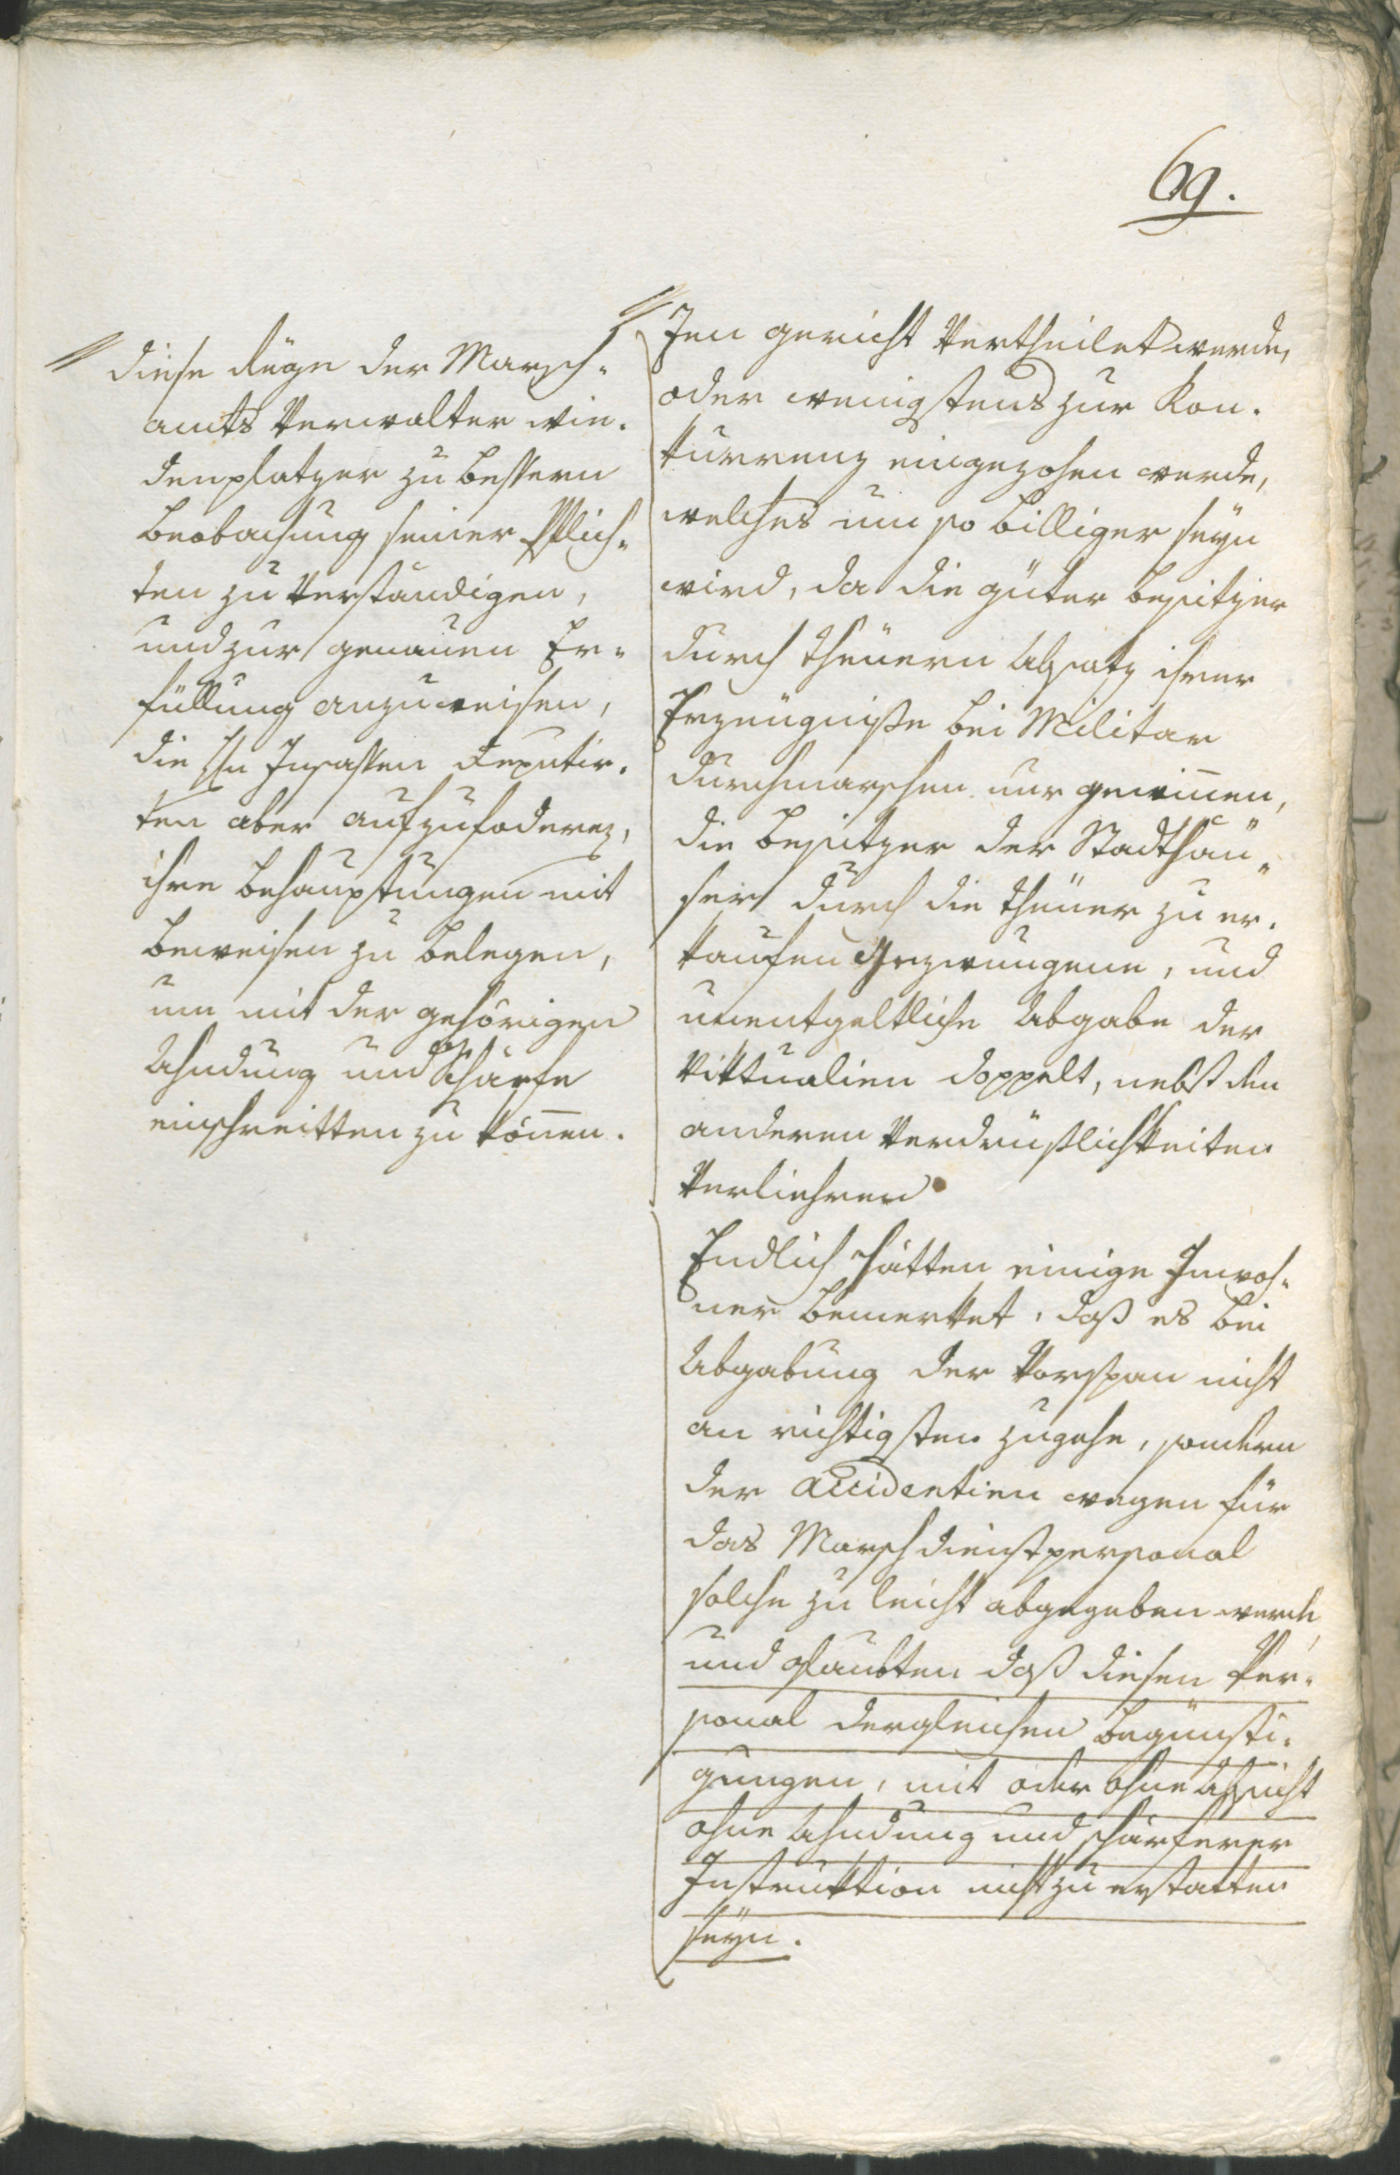 69.
diese Rüge der Marsch-
amts Verwalter Win-
denplatzer zu bessern
Beobachung seiner Pflich-
ten zu verständigen,
und zur genauen Er-
füllung anzuweisen,
die Insassen Deputir-
ten aber aufzufodern,
ihre Behauptungen mit
Beweisen zu belegen,
um mit der gehörigen
Ahndung und Schärfe
einschreitten zu können.
gericht Vertheilet werde,
oder wenigstens zur Kon-
kurrenz eingezohen werde,
welches um so billiger seyn
wird, da die güter besitzer
durch theuern Absatz ihrer
Erzeugniße bei Militar
durchmarschen nur gewinnen,
die Besitzer der Stadthäu-
ser durch die theuer zu er-
kaufen gezwungene, und
unentgeltliche Abgabe der
Viktualien doppelt, nebst den
anderen Verdrüßlichkeiten
Verliehren
Endlich hätten einige Inwoh-
ner bemerket, daß es bei
Abgabung der Vorspan nicht
am richtigsten zugehe, sondern
der Accidentien wegen für
das Marsch dienstpersonal
solche zu leicht abgegeben werde,
und glaubten daß diesen Per-
sonal dergleichen Begünsti-
gungen, mit oder ohne Absicht
ohne Ahndung und schärferer
Instruktion nicht zu erstatten
seyn.